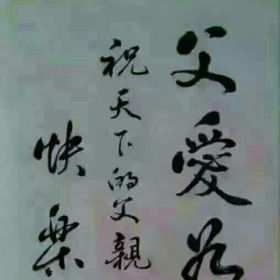 父愛
祝天下的父親
快樂